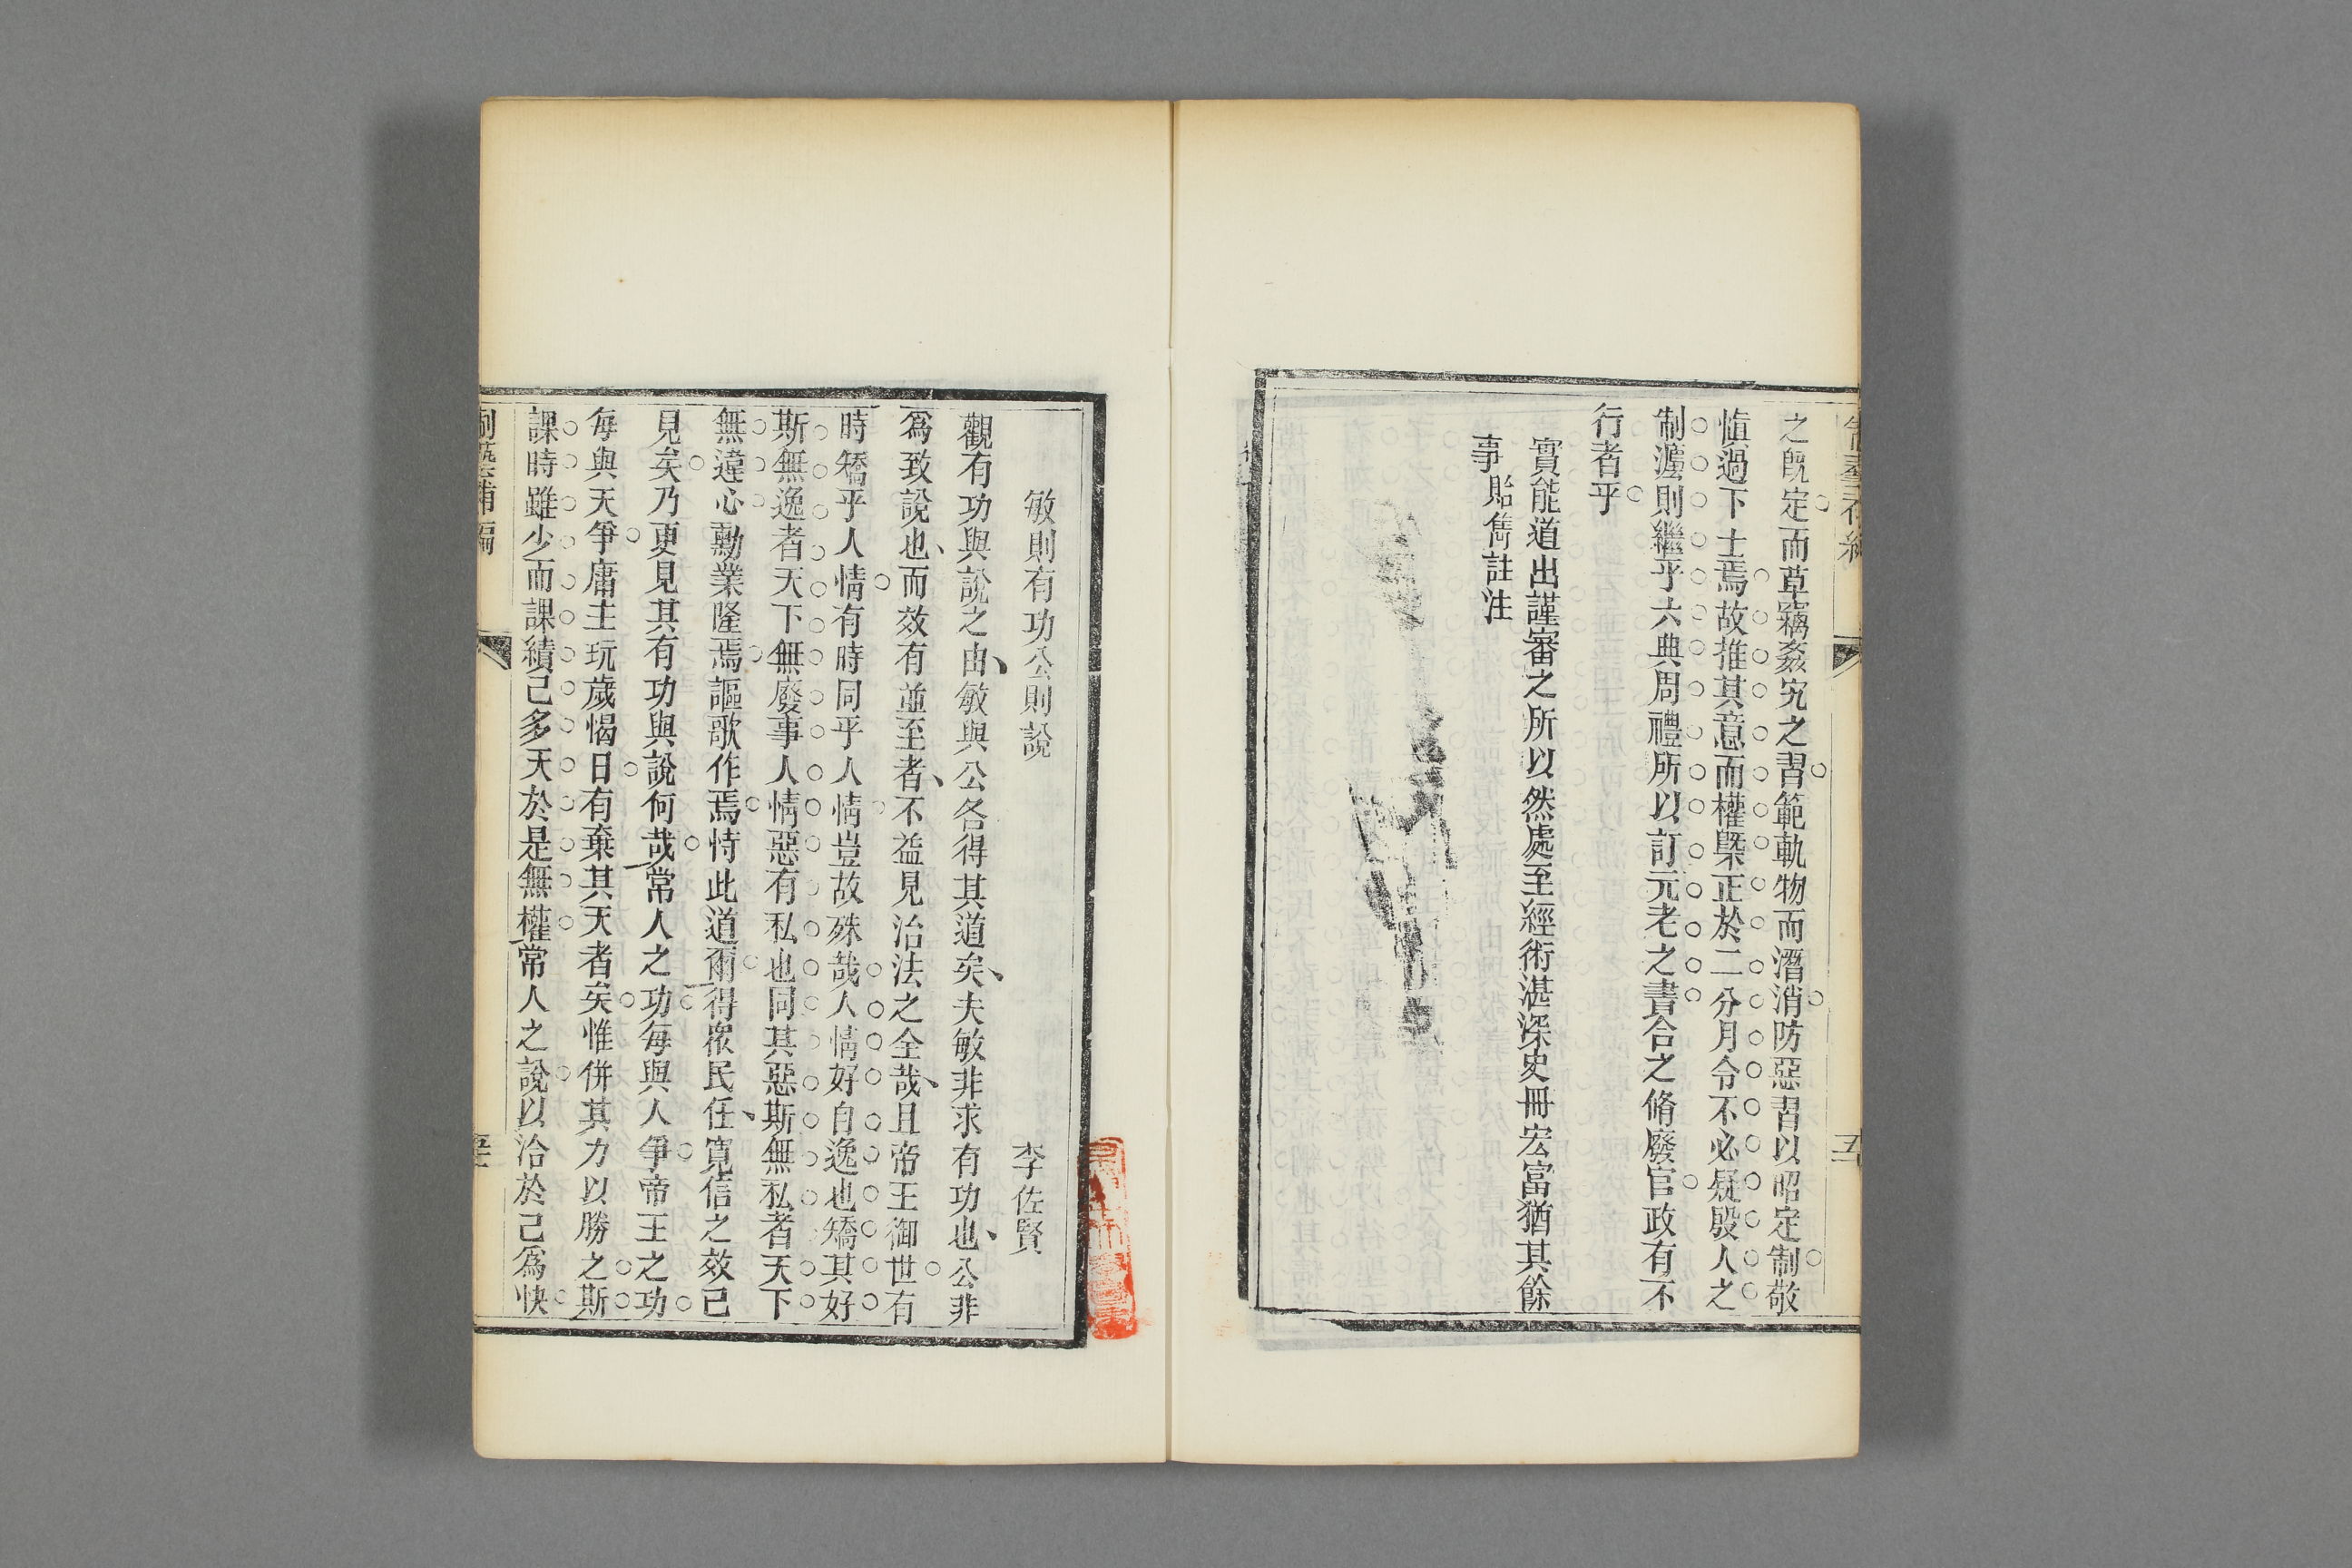 之旣定而草竊姦宄之習範軌物而潛消防惡習以昭定制敬
愼過下士焉故推其意而權槩正於二分月令不必疑殷人之
制灋則繼乎六典周禮所以訂元老之書合之脩廢官政有不
行者乎
實能道出謹審之所以然處至經術湛深史冊宏富猶其餘
事 貽雋註注
敏則有功公則說 李佐賢
觀有功與說之由敏與公各得其道矣夫敏非求有功也公非
爲致說也而效有並至者不益見治法之全哉且帝王御世有
時矯乎人情有時同乎人情豈故殊哉人情好自逸也矯其好
斯無逸者天下無廢事人情惡有私也同其惡斯無私者天下
無違心勳業隆焉謳歌作焉恃此道爾得衆民任寬信之效已
見矣乃更見其有功與說何哉常人之功每與人爭帝王之功
每與天爭庸主玩歲愒日有棄其天者矣惟倂其力以勝之斯
課時雖少而課績已多天於是無權常人之說以洽於己爲快